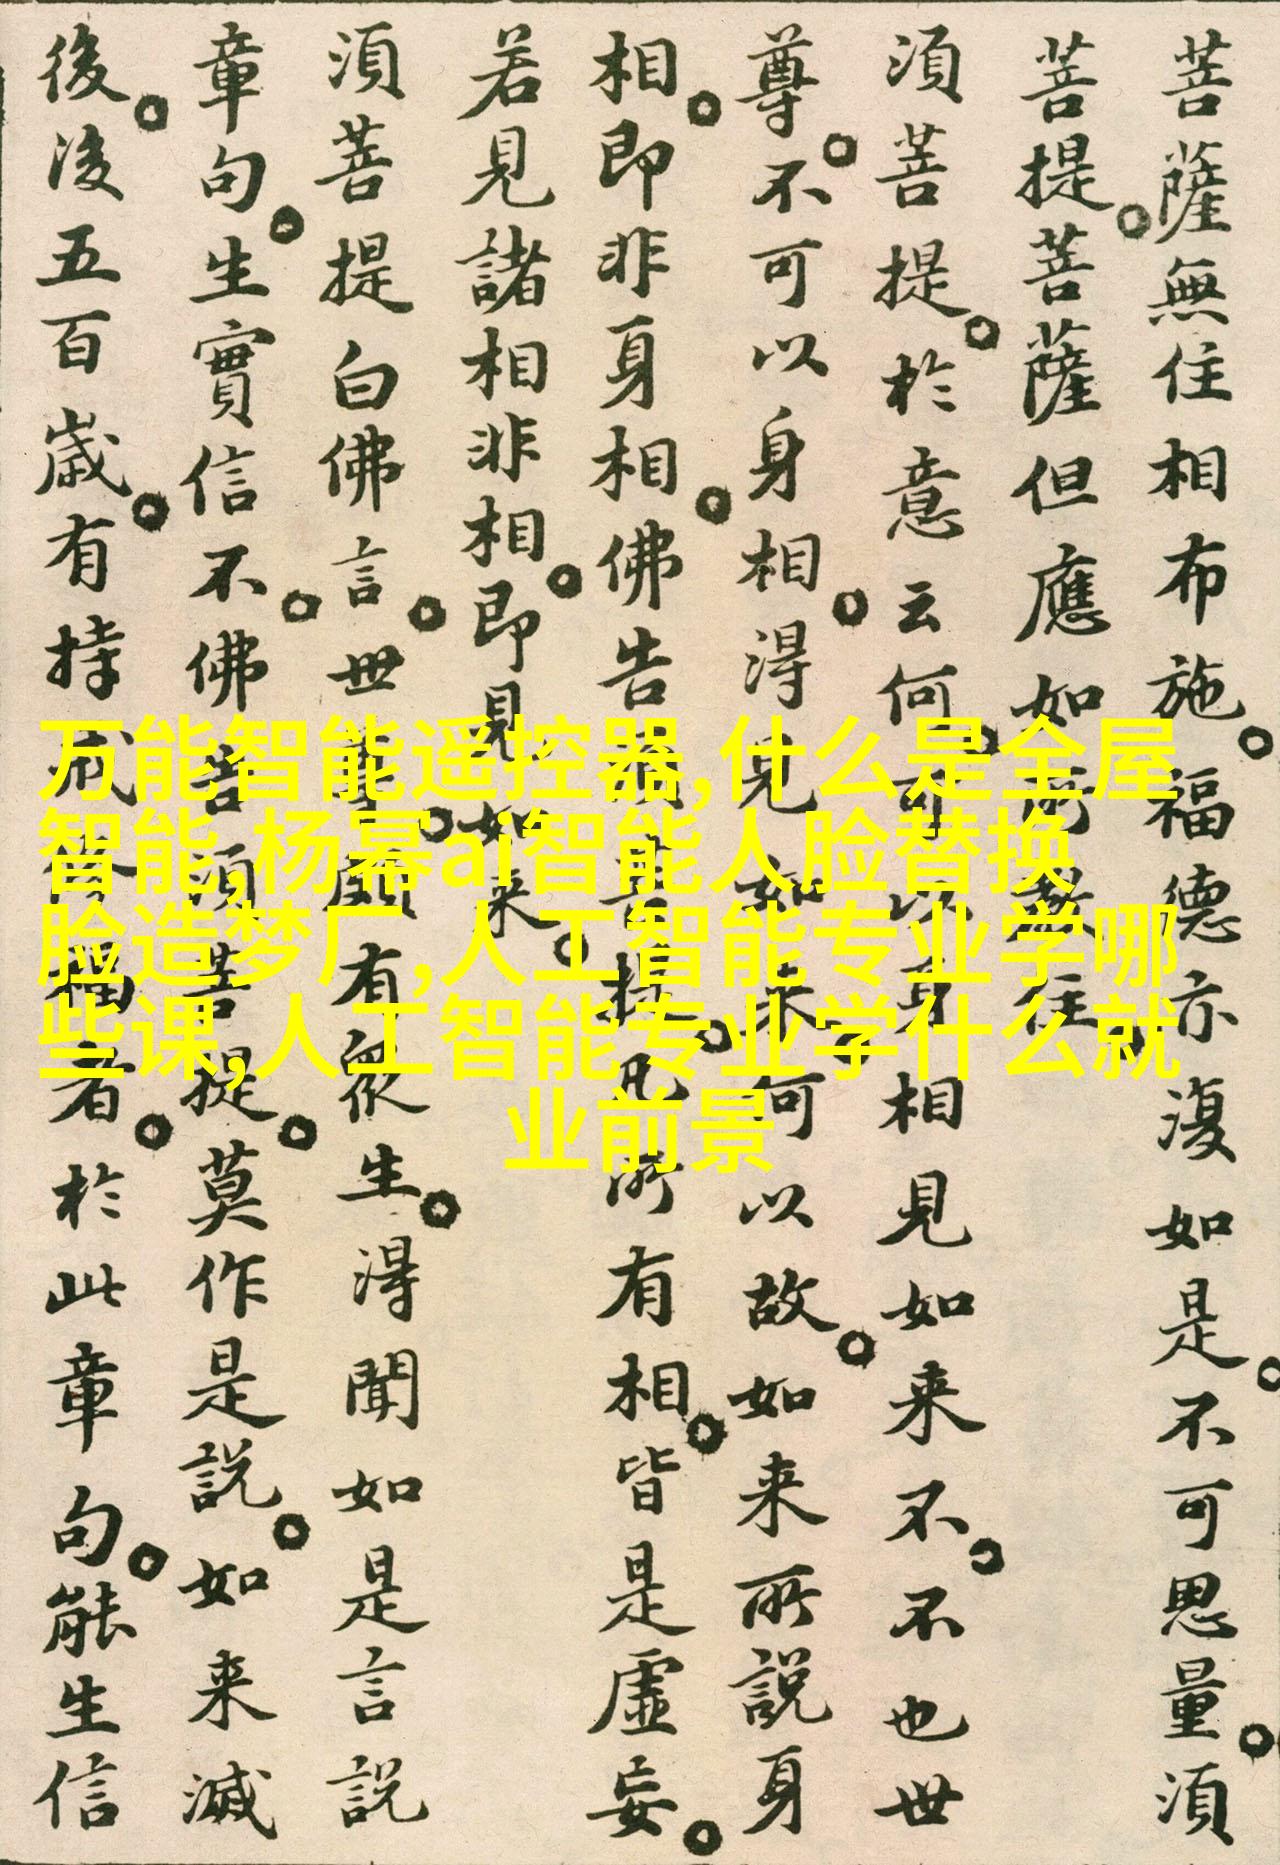 菩薩無住相布施。福德亦復如是。不可思量。須
菩提。菩薩但應如所教住。
須菩提。於意云何。可以身相見如来不。不也世
尊。不可以身相。得見如来。何以故。如来所說身
相。即非身相。佛告須菩提。凡所有相。皆是虛妄。
若見諸相非相。即見如来。
須菩提白佛言。世尊。頗有衆生。得聞如是言說
章句。生實信不。佛告須菩提。莫作是說。如来滅
後。後五百歲。有持戒修福者。於此章句。能生信
万能智能遥控器,什么是全屋
智能,杨幂ai智能人脸替换
脸造梦厂,人工智能专业学哪
些课,人工智能专业学什么就
业前景